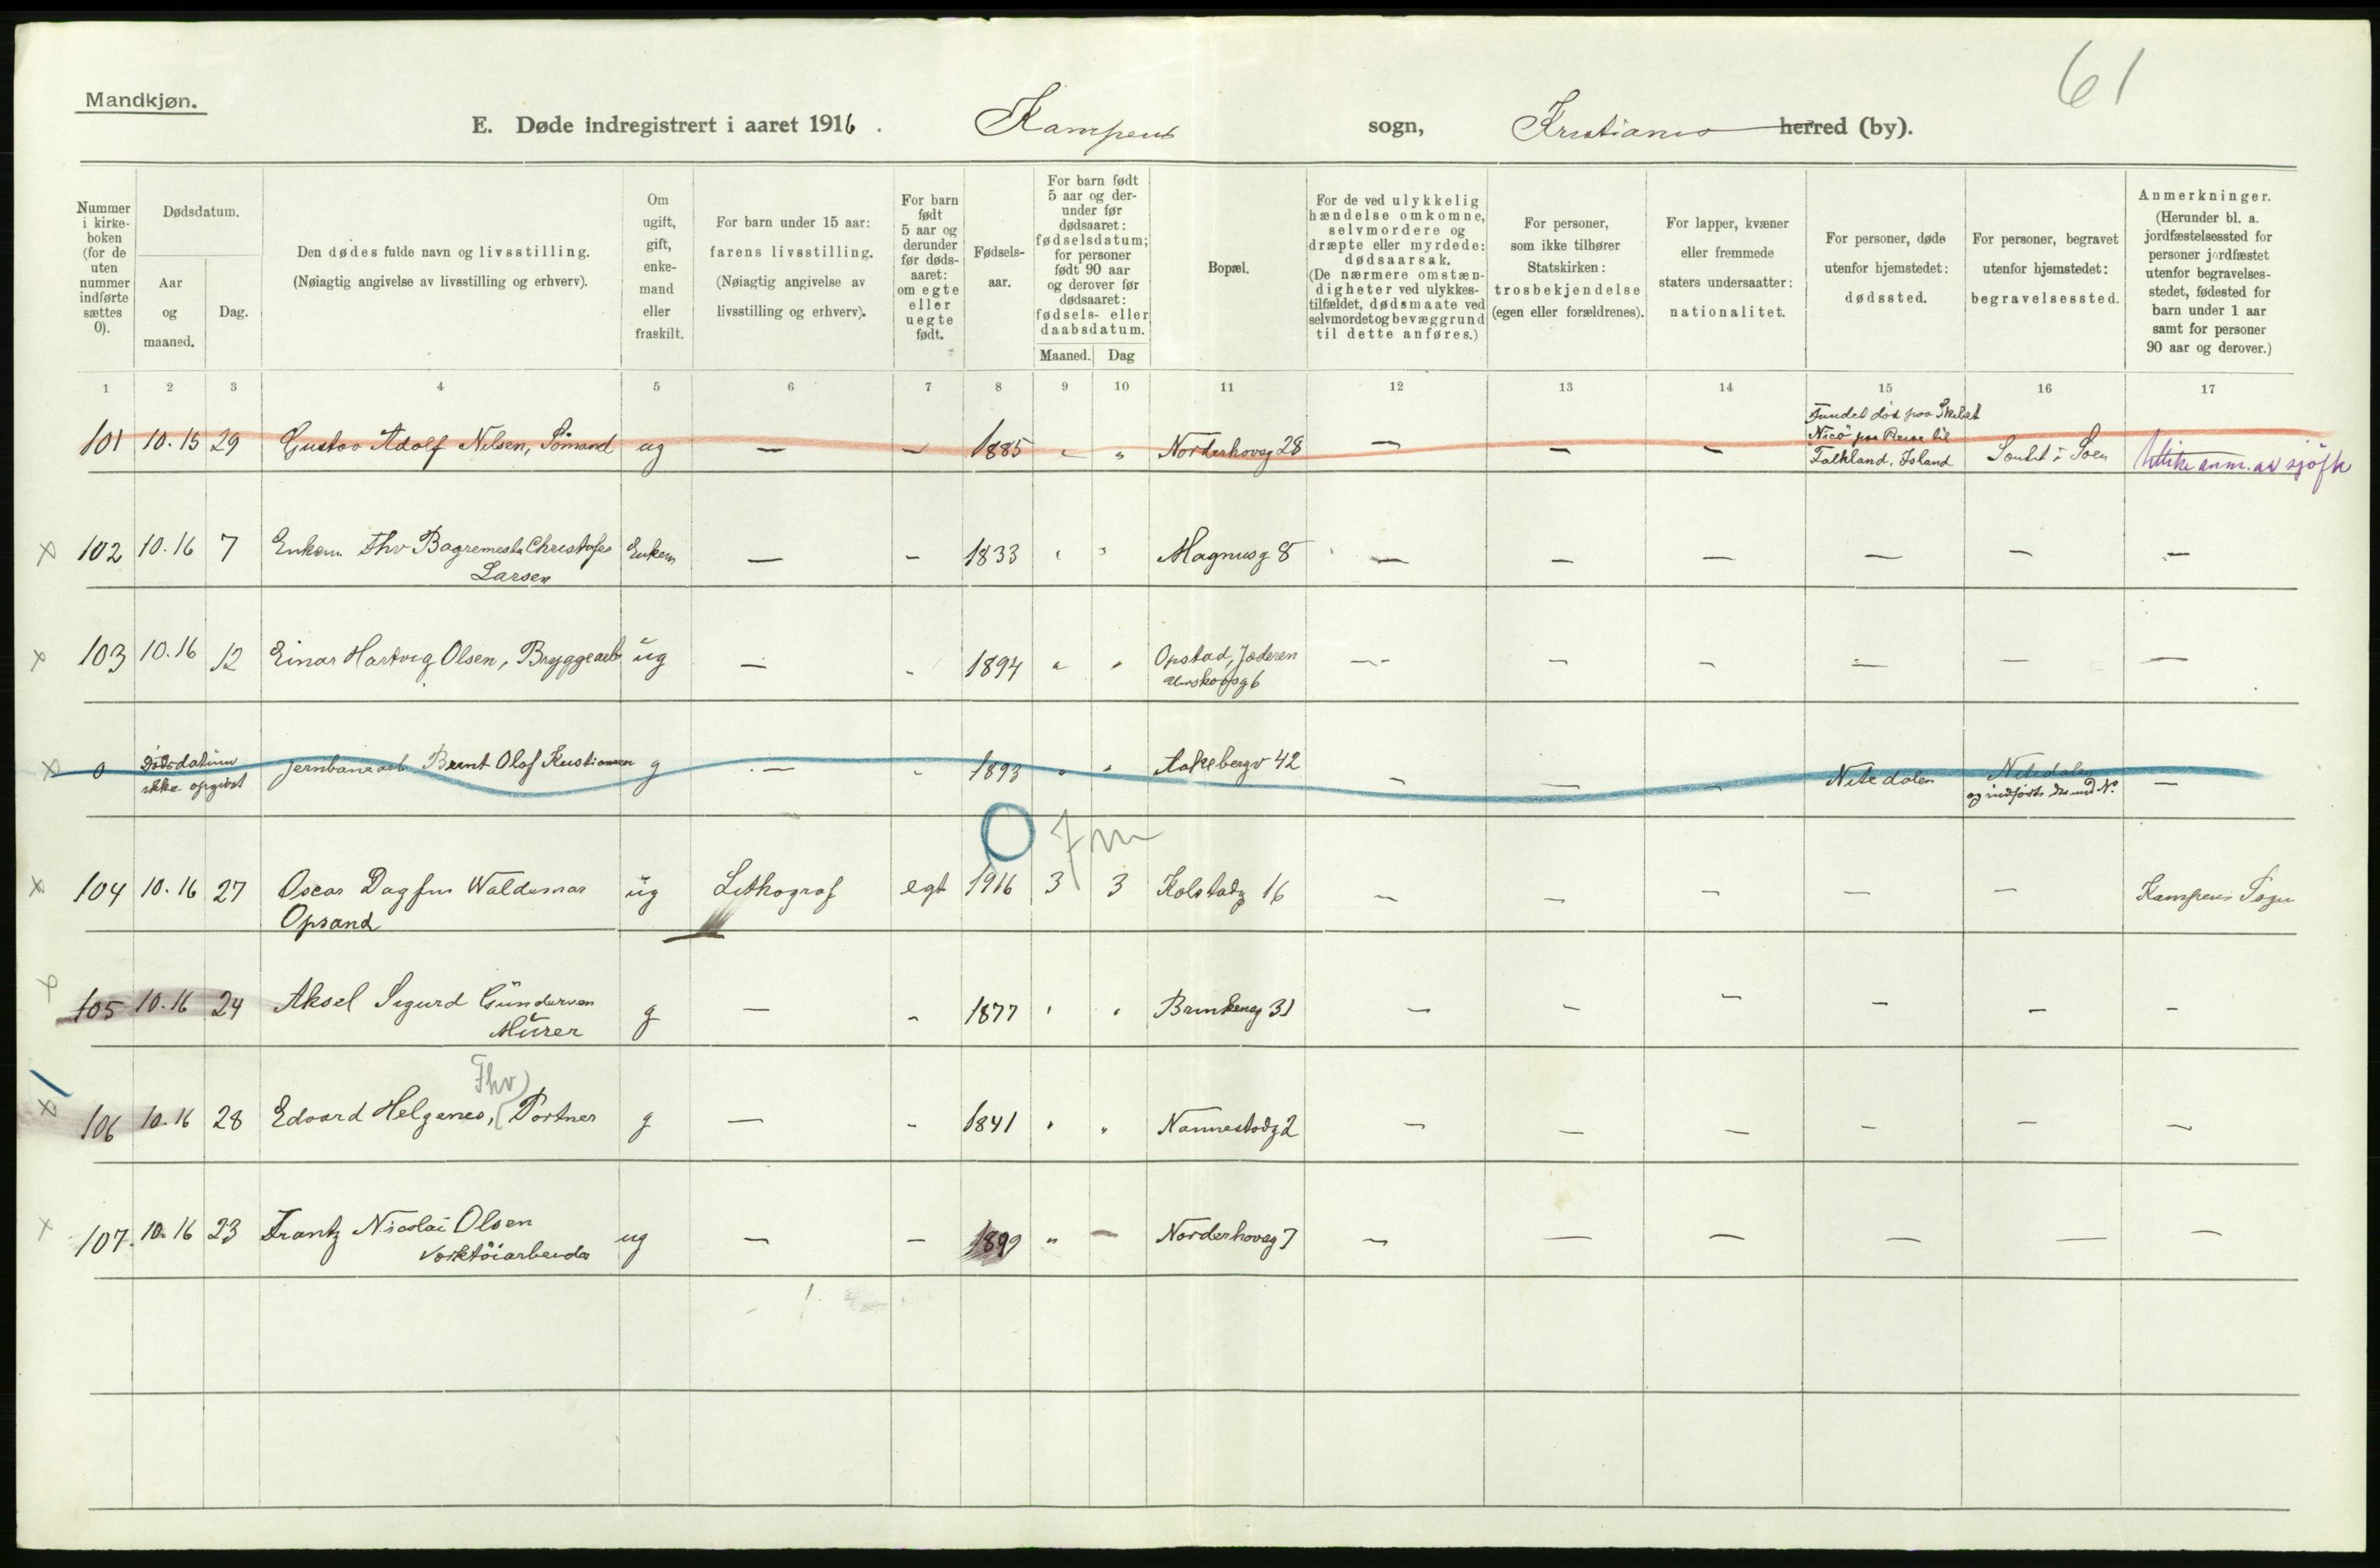 61
Mandkjøn.
E. Døde indregistrert i aaret 1916. Kampens sogn, Kristiania herred (by).
Nummer i kirke-boken (for de uten nummer indførte sættes 0).
Dødsdatum.
Aar og maaned.
Dag.
Den dødes fulde navn og livsstilling.
(Nøiagtig angivelse av livsstilling og erhverv).
Om ugift, gift, enke-mand eller fraskilt.
For barn under 15 aar: farens livsstilling.
(Nøiagtig angivelse av livsstilling og erhverv).
For barn født 5 aar og derunder før døds-aaret: om egte eller uegte født.
Fødsels-aar.
For barn født 5 aar og der-under før dødsaaret: fødselsdatum; for personer født 90 aar og derover før dødsaaret: fødsels- eller daabsdatum.
Maaned. Dag
Bopæl.
For de ved ulykkelig hændelse omkomne, selvmordere og dræpte eller myrdede: dødsaarsak.
(De nærmere omstæn-digheter ved ulykkes-tilfældet, dødsmaate ved selvmordet og bevæggrund til dette anføres.)
For personer, som ikke tilhører Statskirken: trosbekjendelse (egen eller forældrenes).
For lapper, kvæner eller fremmede staters undersaatter: nationalitet.
For personer, døde utenfor hjemstedet: dødssted.
For personer, begravet utenfor hjemstedet: begravelsessted.
Anmerkninger.
(Herunder bl. a. jordfæstelsessted for personer jordfæstet utenfor begravelses-stedet, fødested for barn under 1 aar samt for personer 90 aar og derover.)
1 2 3 4 5 6 7 8 9 10 11 12 13 14 15 16 17
101 10.15 29 Gustav Adolf Nilsen, Sömand ug — — 1885 " " Norderhovg 28 — — — Fundet död paa Skibet
Nicö paa Reise til
Falkland, Island Senket i Soen anm. av sjöfk
x 102 10.16 7 Enkem. Fhv Bagermester Christofer Enkem — — 1833 " " Magnusg 8 — — — — — —
Larsen
x 103 10.16 12 Einar Hartvig Olsen, Bryggearb ug — - 1894 " " Opstad, Jæderen — — — — — —
g 6
x 0 Dødsdatum jernbanearb. Bernt Olaf Kristiansen g — - 1893 " " Aakebergv 42 — — — Nitedalen Nitedalen —
ikke opgivet og indførts der med No.
0 7m
x 104 10.16 27 Oscar Dagfin Waldemar ug Lithograf egt 1916 3 3 Kolstadg 16 — — — — — Kampens Sogn
Opsand
x 105 10.16 24 Aksel Sigurd Gundersen g — - 1877 " " Brinkeng 31 — — — — — -
Murer
Fhv
x 106 10.16 28 Edvard Helgenes, (Portner g — - 1841 " " Nannestadg 2 — — — — — —
x 107. 10.16 23 Frantz Nicolai Olsen ug — — 1899 " — Norderhovg 7 — — — — — —
Verktöiarbeider